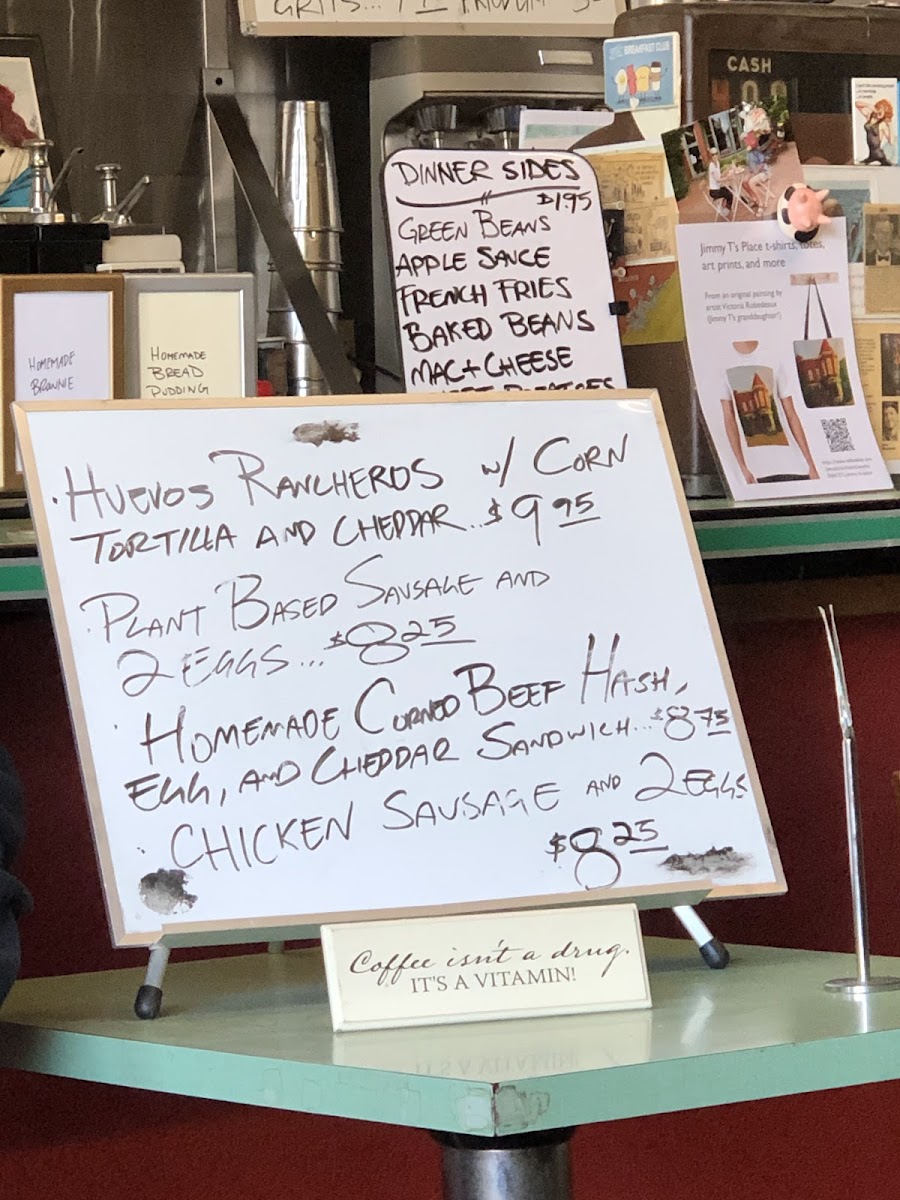 GRITS...
BREAKFAST CLUB
CASH
DINNER SIDES
$1.95
GREEN BEANS
APPLE SAUCE
FRENCH FRIES
BAKED BEANS
MAC+CHEESE
POTATOES
Jimmy T's Place t-shirts, totes,
art prints, and more
From an original painting by
artist Victoria Robedeaux
(Jimmy T's granddaughter!)
HOMEMADE
BROWNIE
HOMEMADE
BREAD
PUDDING
· HUEVOS RANCHEROS W/ CORN
TORTILLA AND CHEDDAR...$9.95
· PLANT BASED SAUSAGE AND
2 EGGS...$8.25
· HOMEMADE CORNED BEEF HASH,
EGG, AND CHEDDAR SANDWICH...$8.75
· CHICKEN SAUSAGE AND 2 EGGS
$8.25
Coffee isn't a drug.
IT'S A VITAMIN!